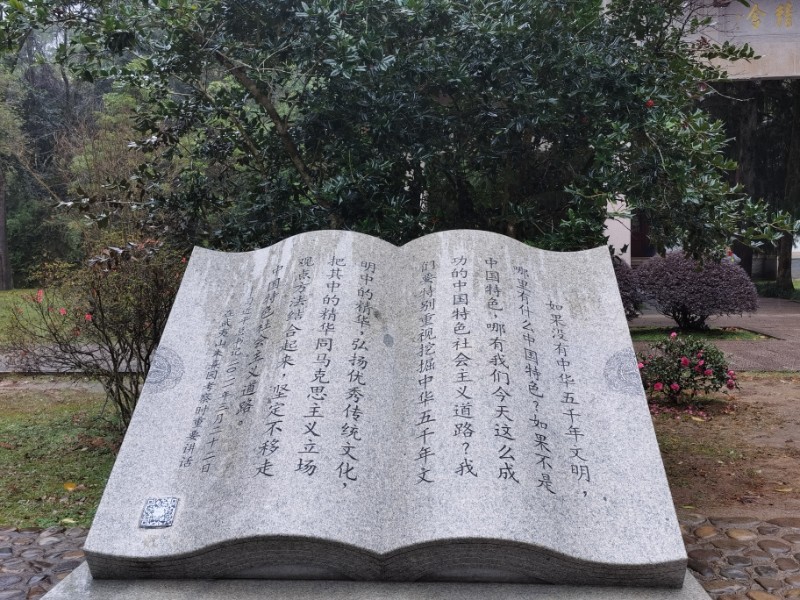 精舍
如果没有中华五千年文明，
哪里有什么中国特色？如果不是
中国特色，哪有我们今天这么成
功的中国特色社会主义道路？我
们要特别重视挖掘中华五千年文
明中的精华，弘扬优秀传统文化，
把其中的精华同马克思主义立场
观点方法结合起来，坚定不移走
中国特色社会主义道路。
习近平总书记二〇二一年三月二十二日
在武夷山朱熹园考察时重要讲话